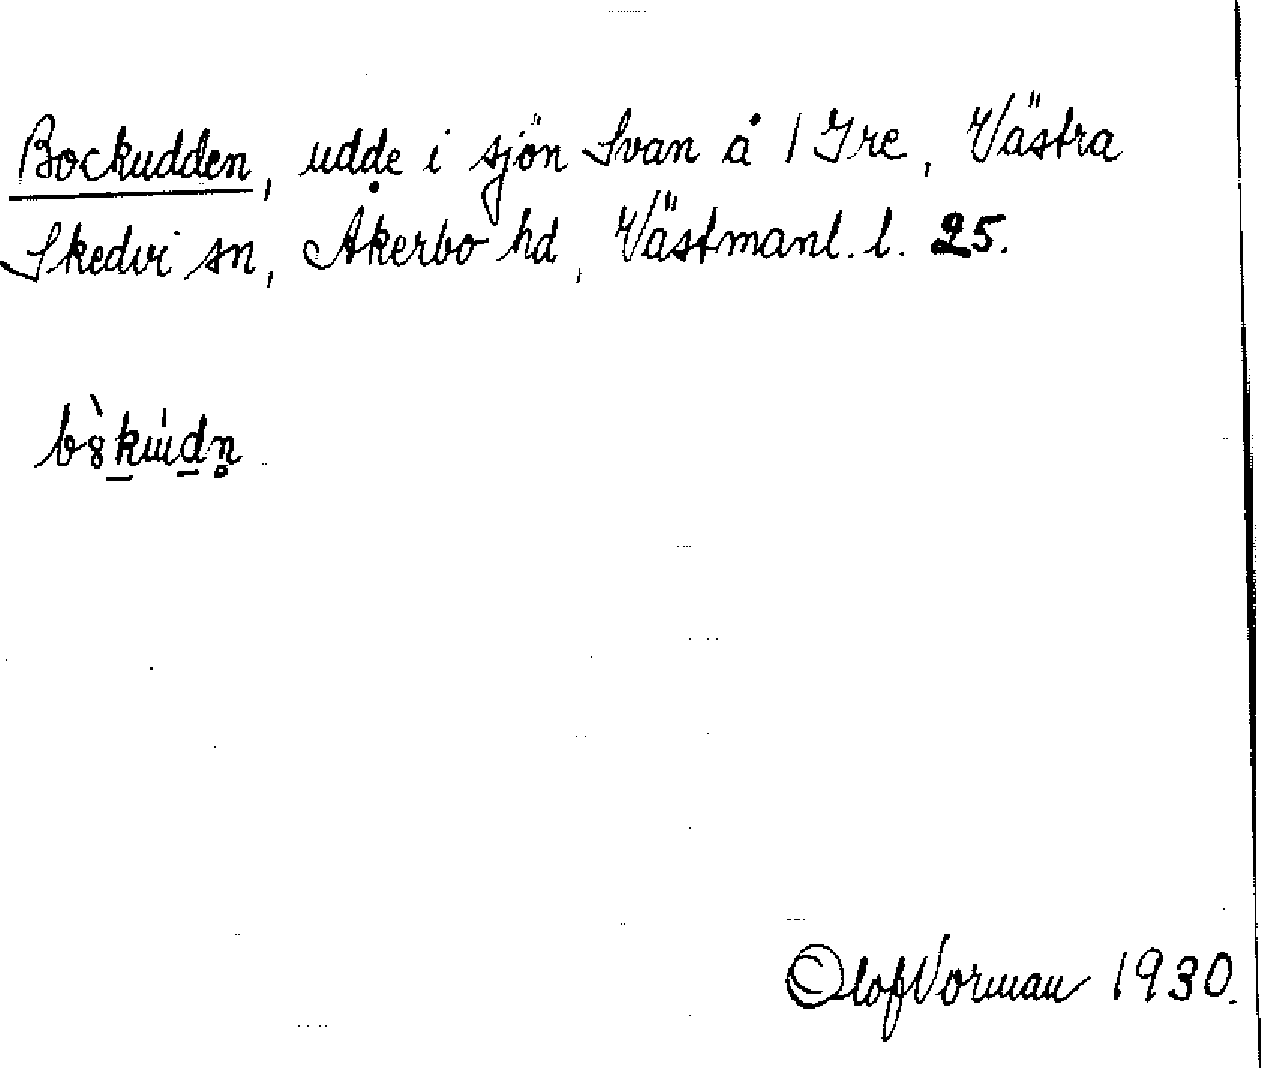 Bockudden, udde i sjön Svan å 1 Gre, Västra
Skedvi sn, Åkerbo hd, Västmanl. l. 25.
Olof Vorman 1930.